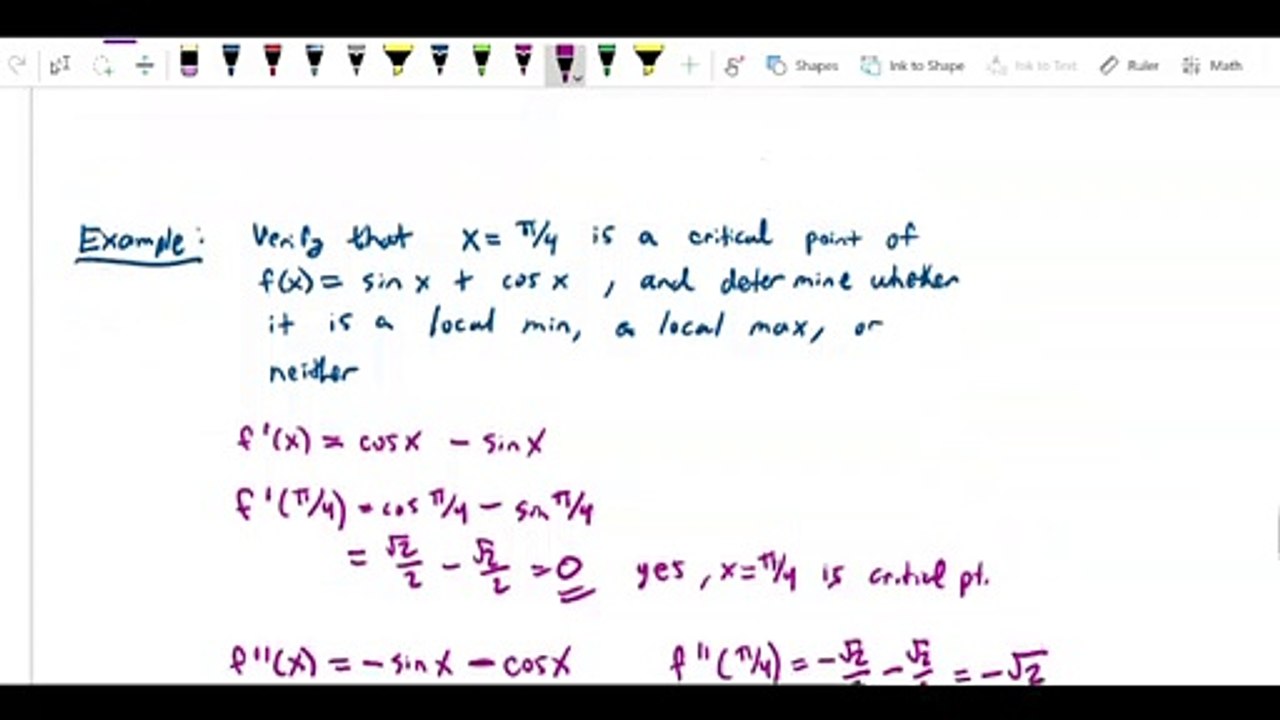 Shapes Ink to Shape Ink to Text Ruler Math
Example: Verify that x = π/4 is a critical point of
f(x) = sin x + cos x , and determine whether
it is a local min, a local max, or
neither
f'(x) = cos x - sin x
f'(π/4) = cos π/4 - sin π/4
= √2/2 - √2/2 = 0 yes, x = π/4 is critical pt.
f''(x) = - sin x - cos x f''(π/4) = -√2/2 - √2/2 = -√2